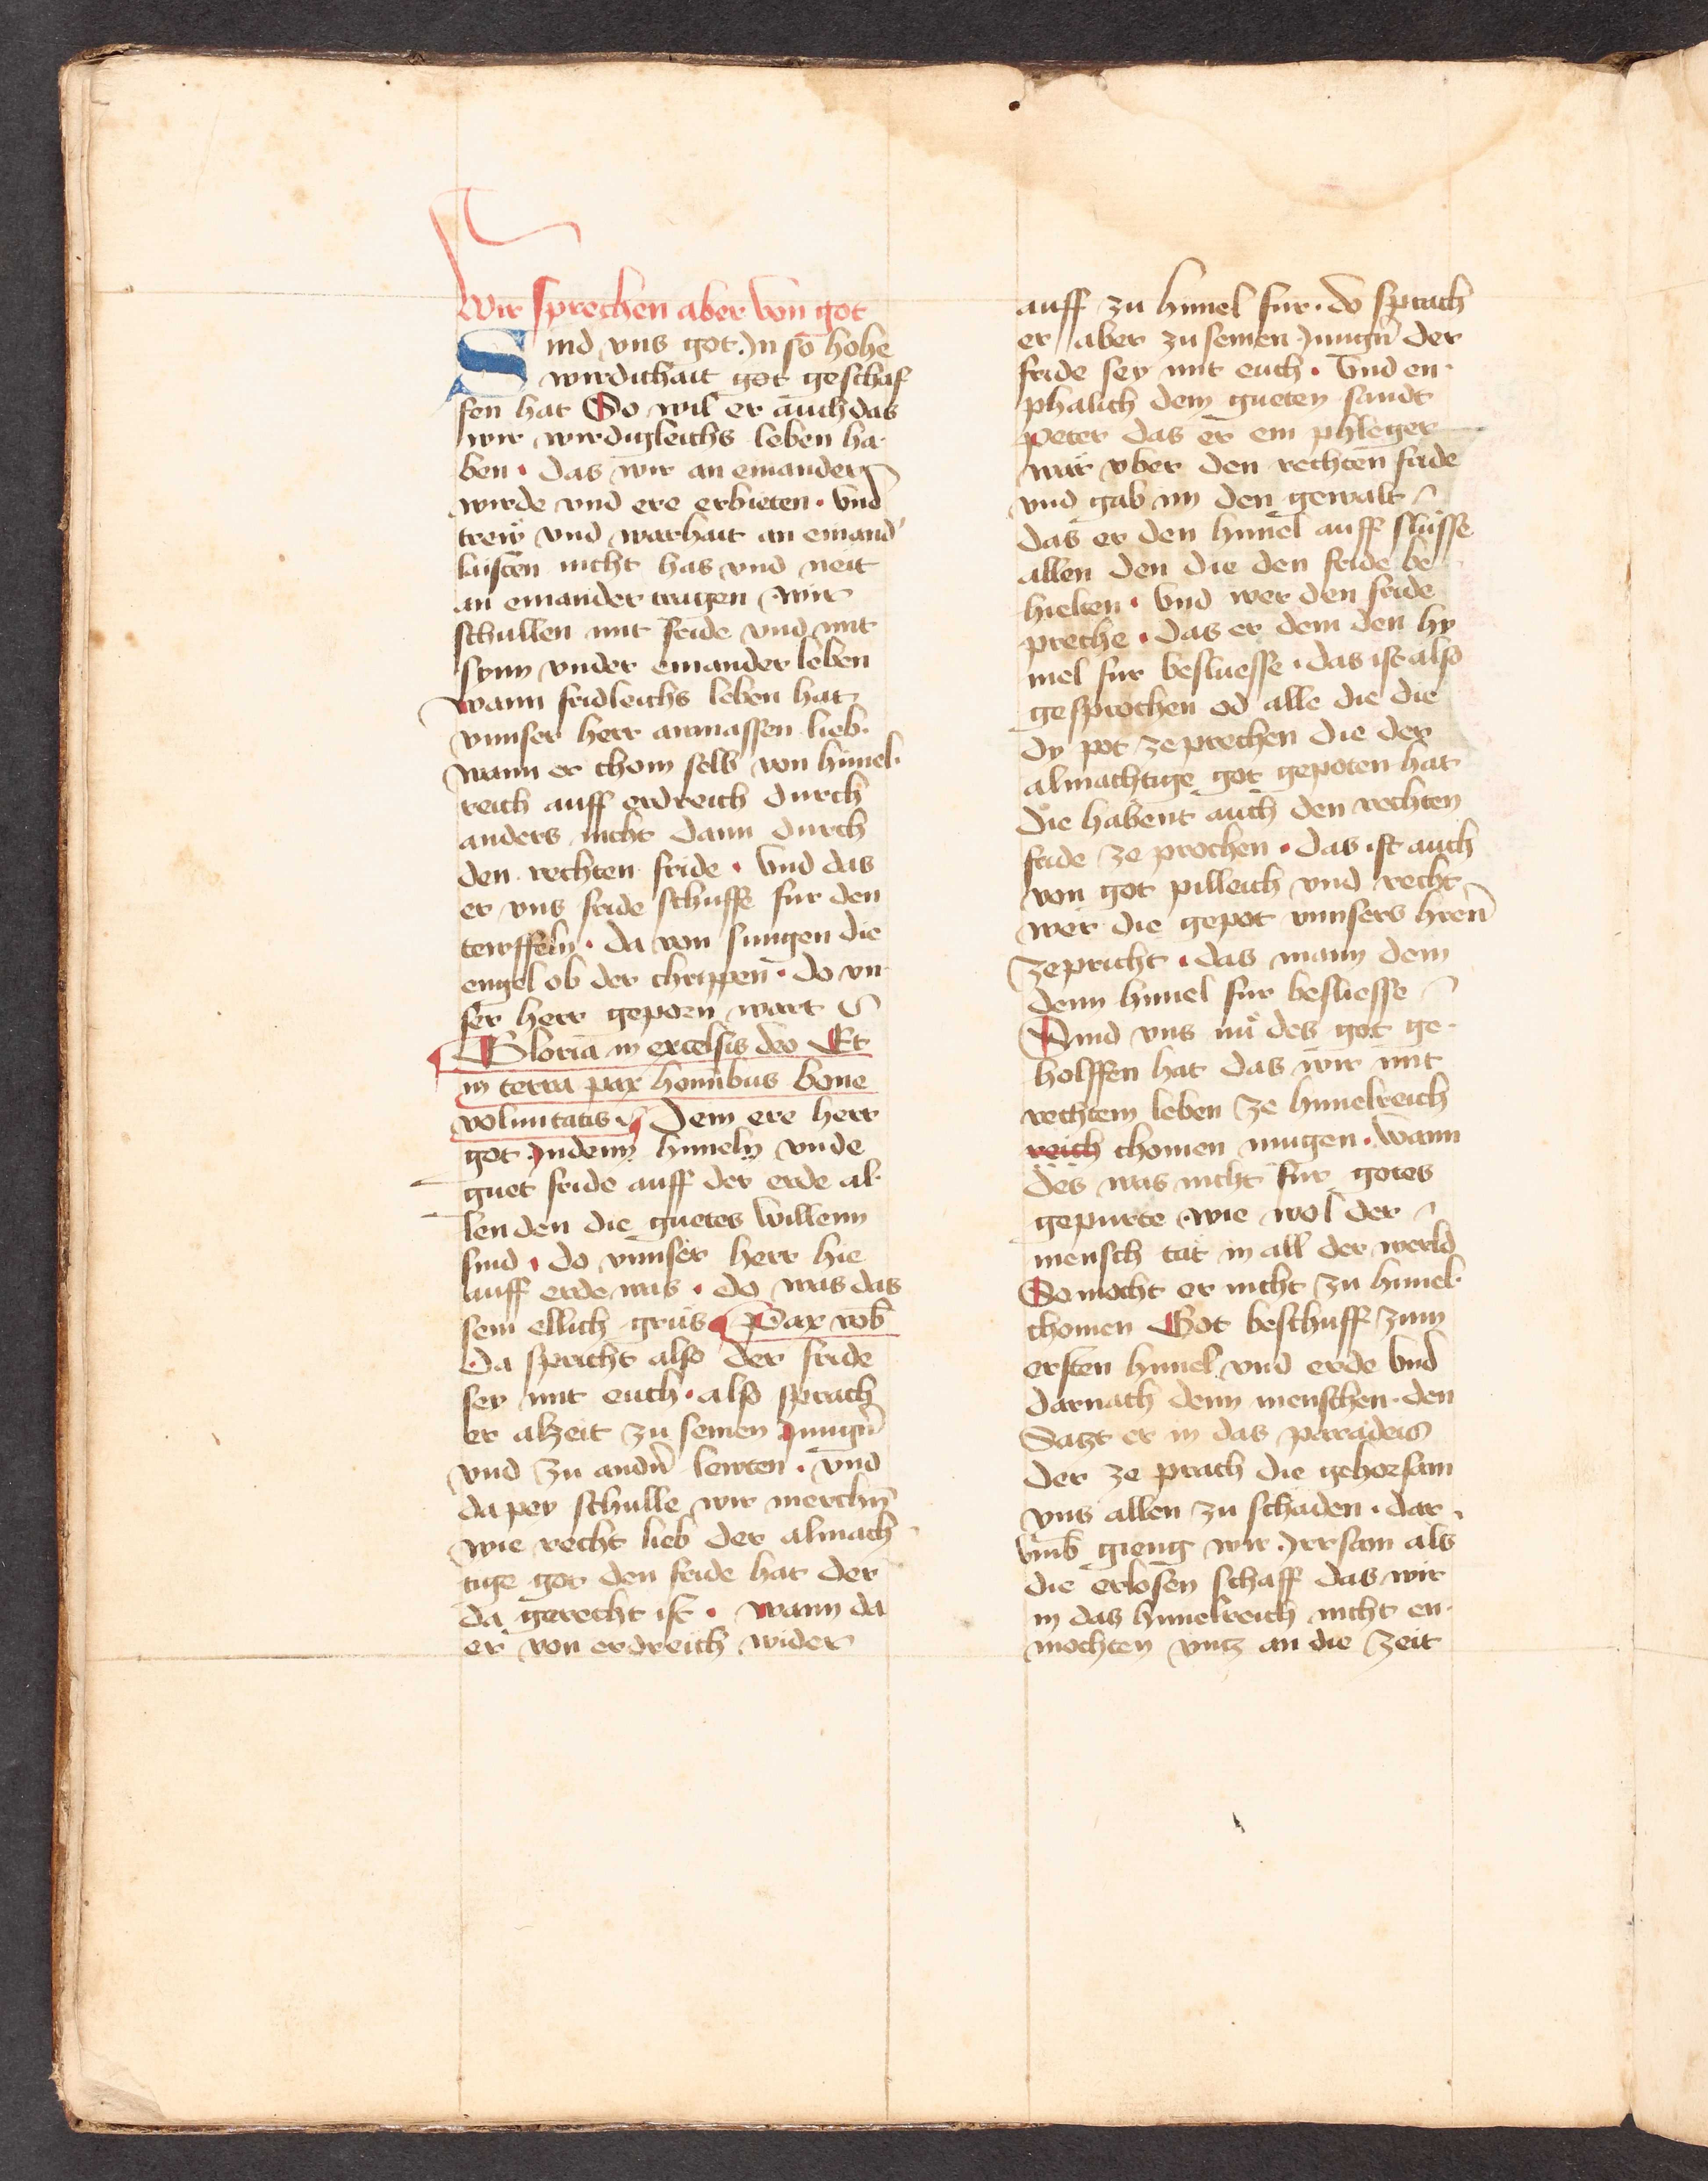 Wir sprechen aber von got
Sind vns got Jn so hohe
wirdichait got geschaf
fen hat So wil er auch das
wir wirdigleichs leben ha
ben · das wir an einander
wirde vnd ere erbieten · vnd
trew vnd warhait an einand'
laisten nicht has vnd neit
an einander tragen wir
schullen mit fride vnd mit
synn vnder einander leben
wann fridleichs leben hat
vnnser herr anmassen lieb ·
wann er chom selb von himel
reich auff erdreich durch
anders nicht dann durch
den rechten fride · vnd das
er vns fride schuffe fur den
tewffeln · da von sungen die
engel ob der chrippen · do vn
ser herr geporn wart
Gloria in excelsis deo Et
in terra pax hominibus bone
voluntatis · Dem ere herr
got Jndenn himeln vnde
guet fride auff der erde al
len den die guetes willenn
sind · do vnnser herr hie
auff erde was · do was das
sein ellich grus Pax vob̄
Da spricht also der fride
sey mit euch · also sprach
er alzeit zu seinen Jungn̄
vnd zu andn̄ lewten · vnd
da pey schulle wir merchn̄
wie recht lieb der almach
tige got den fride hat der
da gerecht ist · wann da
er von erdreich wider
auff zu himel fur · do sprach
er aber zu seinen Jungn̄ der
fride sey mit euch · vnd en
phalich dem gueten sandt
peter das er ein phleger
wär vber den rechten fride
vnd gab im den gewalt
das er den himel auff slusse
allen den die den fride be
hielten · vnd wer den fride
preche · das er dem den hy
mel fur besluesse · das ist also
gesprochen od alle die die
dy pot zeprechen die der
almachtige got gepoten hat
die habent auch den rechten
fride ze prochen · das ist auch
von got pilleich vnd recht
wer die gepot vnnsers hren̄
zepricht · das mann dem
denn himel fur besliesse
Sind vns nu des got ge
holffen hat das wir mit
rechtem leben ze himelreich
reich chomen mugen · wann
des was nicht fur gotes
gepurte wie wol der
mensch tat in all der werld
So mocht er nicht zu himel
chomen Got beschuff zum
ersten himel vnd erde vnd
darnach denn menschen · den
Satzt er in das paradeis
der ze prach die gehorsam
vns allen zu schaden · dar
vmb gieng wir Jrrsam als
die erlosen schaff das wir
in das himelreich nicht en
mochten vntz an die zeit